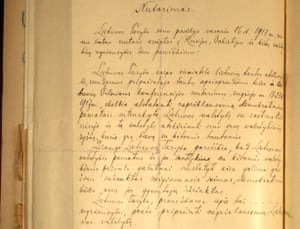 Nutarimas.
Lietuvos Taryba savo posėdyje vasario 16 d. 1918 m. vie-
nu balsu nutarė kreiptis į Rusijos, Vokietijos ir kitų vals-
tybių vyriausybes šiuo pareiškimu:
Lietuvos Taryba, kaipo vienintelė lietuvių tautos
remdamos pripažintąja tautų apsisprendimo teise ir
Vilniaus konferencijos nutarimu rugsėjo m. 18-23 d.
1917 m. skelbia atstatanti nepriklausomą demokratiniais
pamatais sutvarkytą Lietuvos valstybę su sostine Vil-
niuje ir tą valstybę atskirianti nuo visų valstybinių
ryšių, kurie yra buvę su kitomis tautomis.
Drauge Lietuvos Taryba pareiškia, kad Lietuvos
valstybės pamatus ir jos santykius su kitomis valsty-
bėmis privalo galutinai nustatyti kiek galima grei-
čiau sušauktas steigiamasis seimas, demokratiniu
būdu visų jos gyventojų išrinktas.
Lietuvos Taryba, pranešdama apie
vyriausybei, prašo pripažinti nepriklausomą Lietu-
vos valstybę.